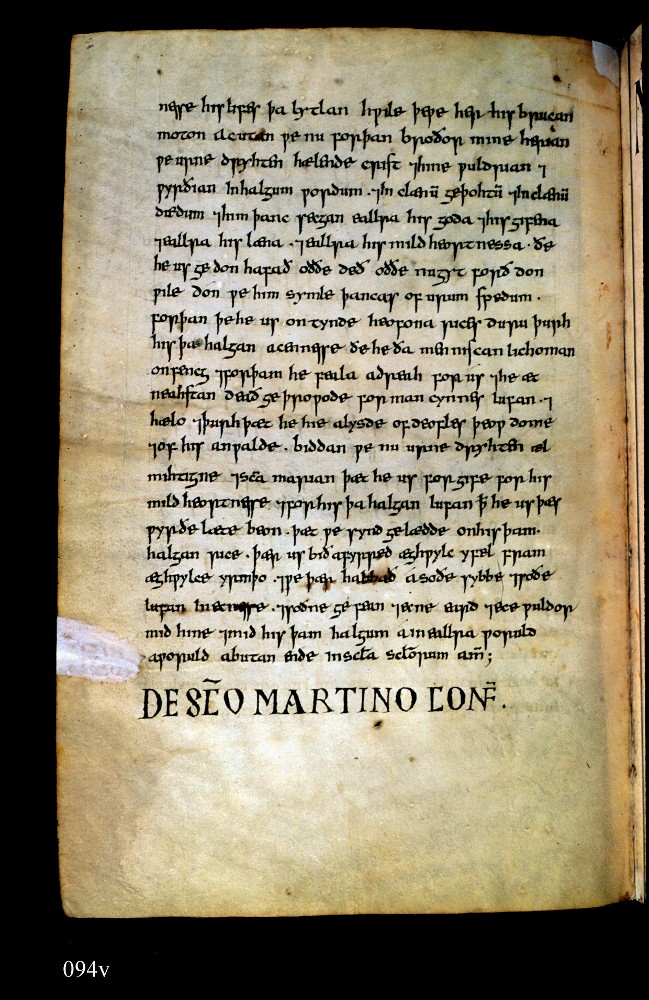 nesse his lifes þa lytlan hƿile þeþe her his brucan
moton ac utan ƿe nu forþan broðor mine herian
ƿe urne dryhten hælende crist ⁊hine ƿuldrian ⁊
ƿyrðian inhalgum ƿordum · ⁊in clænū geþohtū ⁊in clænū
dædum ⁊him þanc secgan ealra his goda ⁊his gifena
⁊ealra his læna · ⁊ealra his mildheortnessa · ðe
he us gedon hafað oððe deð oððe nugyt forð don
ƿile don ƿe him symle þancas of urum spedum ·
forþan þe he us ontynde heofona rices duru þurh
his þa halgan acennesse ðe he ða menniscan lichoman
onfeng ⁊forþam he feala adreah for us ⁊he æt
neahstan deað geþroƿode for man cynnes lufan · ⁊
hælo ⁊þurh þæt he hie alysde of deofles þeoƿdome
⁊of his anƿalde · biddan ƿe nu urne dryhten æl
mihtigne ⁊sc̄a marian þæt he us forgife for his
mildheortnesse ⁊for his þa halgan lufan ꝥ he us þæs
ƿyrðe læte beon · þæt ƿe synd gelædde on his þam
halgan rice · þær us bið afyrred æghƿylc yfel fram
æghƿylce yrmþo · ⁊ƿe þær habbað a soðe sybbe ⁊soðe
lufan ⁊soðne gefean ⁊ecne eard ⁊ece ƿuldor
mid hine ⁊mid his þam halgum a in ealra ƿoruld
aƿoruld abutan ende in sc̄la sc̄lorum am̄;
DE SC̄O MARTINO CONF̄.
094v